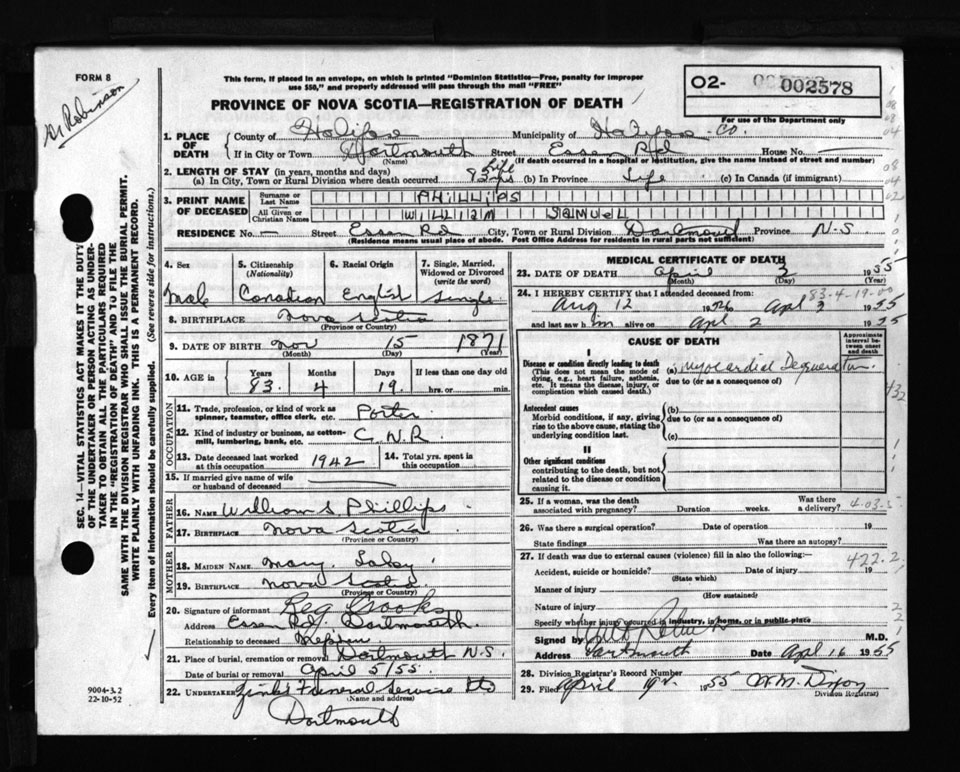 FORM 8
This form, if placed in an envelope, on which is printed "Dominion Statistics—Free, penalty for improper
use $50," and properly addressed will pass through the mail "FREE"
O2- 002578
For use of the Department only
Robinson
PROVINCE OF NOVA SCOTIA—REGISTRATION OF DEATH
1. PLACE OF DEATH
County of Halifax Municipality of Halifax Co.
If in City or Town Dartmouth Street Essen Rd House No. —
(Name) (If death occurred in a hospital or institution, give the name instead of street and number)
2. LENGTH OF STAY (in years, months and days)
(a) In City, Town or Rural Division where death occurred 83 yrs life (b) In Province Life (c) In Canada (if immigrant)
3. PRINT NAME OF DECEASED
Surname or Last Name PHILLIPS
All Given or Christian Names WILLIAM SAMUEL
RESIDENCE No. — Street Essen Rd City, Town or Rural Division Dartmouth Province N.S
(Residence means usual place of abode. Post Office Address for residents in rural parts not sufficient)
4. Sex Male
5. Citizenship (Nationality) Canadian
6. Racial Origin English
7. Single, Married, Widowed or Divorced (write the word) Single
8. BIRTHPLACE Nova Scotia
(Province or Country)
9. DATE OF BIRTH Nov 15 1871
(Month) (Day) (Year)
10. AGE in Years 83 Months 4 Days 19 If less than one day old hrs. or min.
OCCUPATION
11. Trade, profession, or kind of work as spinner, teamster, office clerk, etc. Porter
12. Kind of industry or business, as cotton-mill, lumbering, bank, etc. C.N.R.
13. Date deceased last worked at this occupation 1942
14. Total yrs. spent in this occupation
15. If married give name of wife or husband of deceased
FATHER
16. NAME William S Phillips
17. BIRTHPLACE Nova Scotia
(Province or Country)
MOTHER
18. MAIDEN NAME Mary
19. BIRTHPLACE Nova Scotia
(Province or Country)
20. Signature of informant Reg
Address Essen Rd. Dartmouth.
Relationship to deceased Nephew
21. Place of burial, cremation or removal Dartmouth N.S.
Date of burial or removal April 5/55
22. UNDERTAKER Zink's Funeral Service Ltd
(Name and address)
Dartmouth
MEDICAL CERTIFICATE OF DEATH
23. DATE OF DEATH April 3 1955
(Month) (Day) (Year)
83-4-19-00
24. I HEREBY CERTIFY that I attended deceased from:
Aug 12 1954 to Apl 3 1955
and last saw him alive on Apl 2 1955
CAUSE OF DEATH
Approximate interval between onset and death
I
Disease or condition directly leading to death
(This does not mean the mode of dying, e.g., heart failure, asthenia, etc. It means the disease, injury, or complication which caused death.)
(a) Myocardial Degeneration
due to (or as a consequence of)
Antecedent causes
Morbid conditions, if any, giving rise to the above cause, stating the underlying condition last.
(b)
due to (or as a consequence of)
(c)
II
Other significant conditions
contributing to the death, but not related to the disease or condition causing it.
25. If a woman, was the death associated with pregnancy? Duration weeks. Was there a delivery?
26. Was there a surgical operation? Date of operation 19
State findings Was there an autopsy?
27. If death was due to external causes (violence) fill in also the following:—
422.2
Accident, suicide or homicide? Date of injury 19
(State which)
Manner of injury
(How sustained)
Nature of injury
Specify whether injury occurred in industry, in home, or in public place
Signed by M.D.
Address Dartmouth Date Apl 16 1955
28. Division Registrar's Record Number
29. Filed April 19 1955 W.M. Dixon
Division Registrar
SEC. 14—VITAL STATISTICS ACT MAKES IT THE DUTY
OF THE UNDERTAKER OR PERSON ACTING AS UNDER-
TAKER TO OBTAIN ALL THE PARTICULARS REQUIRED
IN THE "REGISTRATION OF DEATH" AND TO FILE THE
SAME WITH THE DIVISION REGISTRAR WHO SHALL ISSUE THE BURIAL PERMIT.
WRITE PLAINLY WITH UNFADING INK. THIS IS A PERMANENT RECORD.
Every item of information should be carefully supplied. (See reverse side for instructions.)
9004-3.2
22-10-52